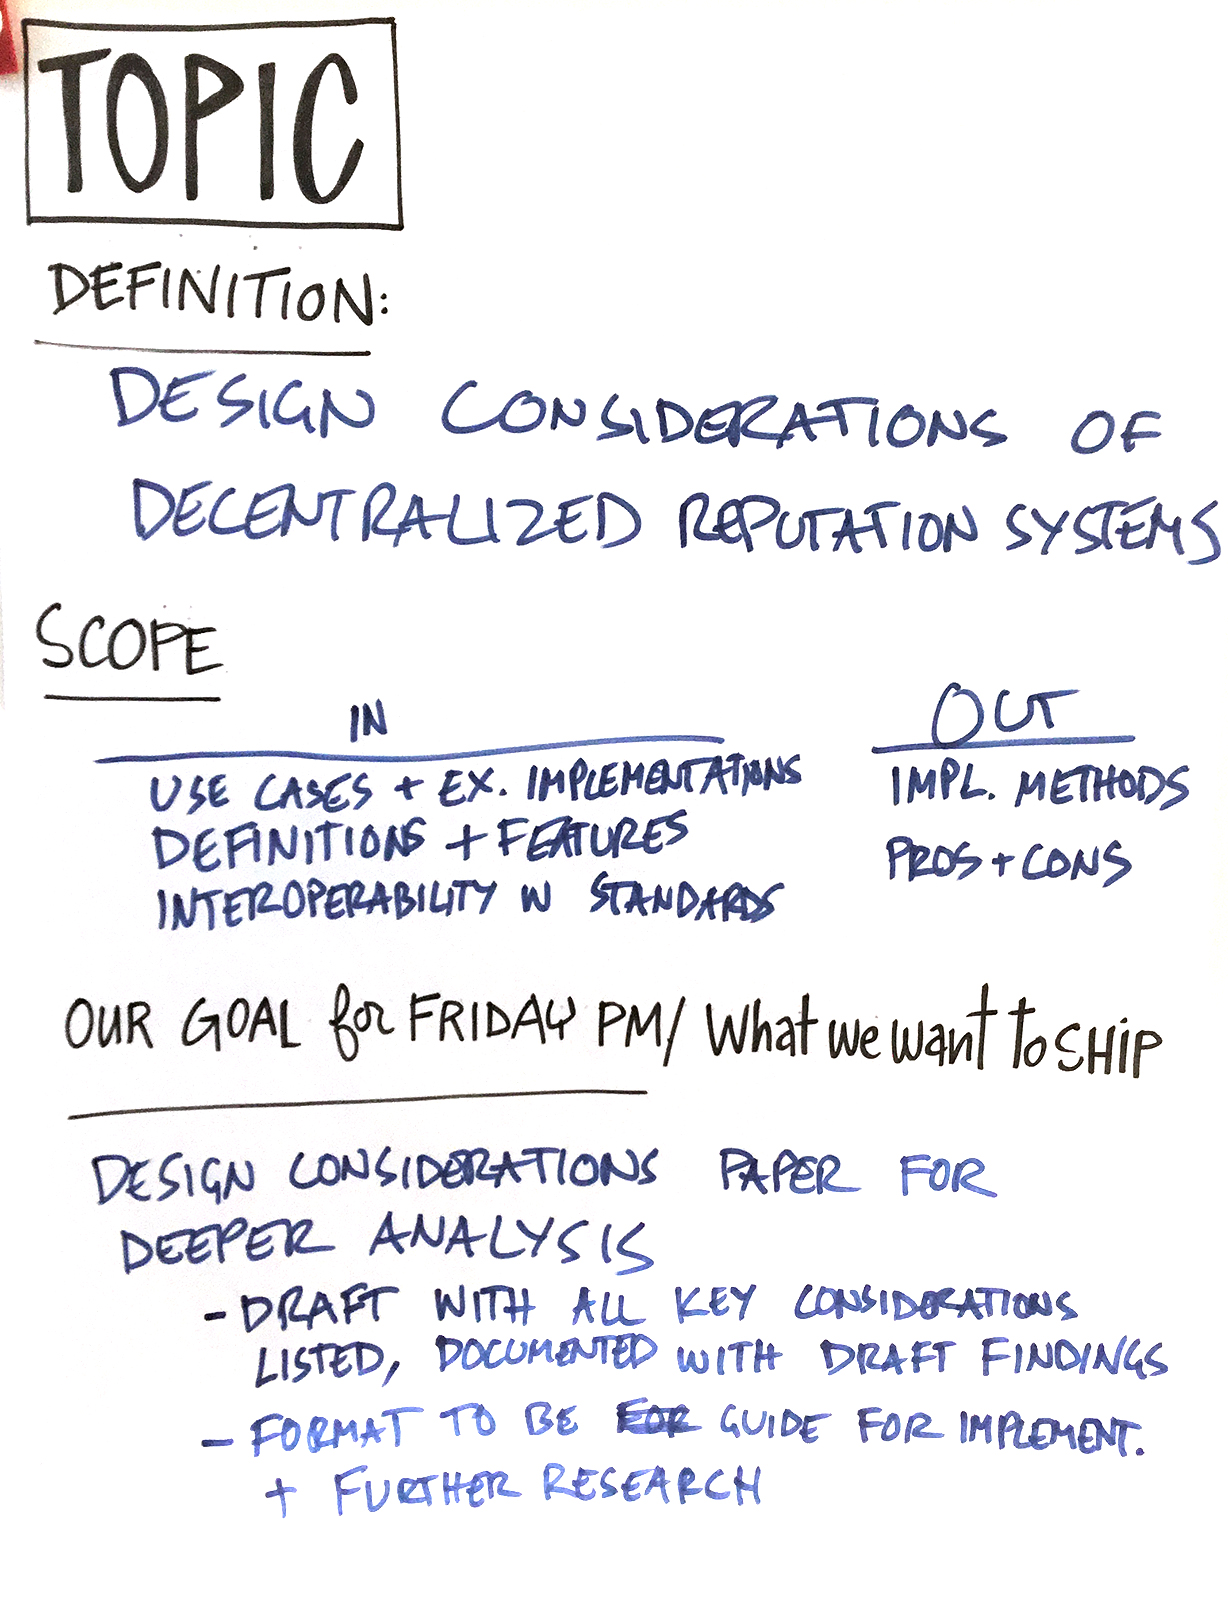 TOPIC
DEFINITION:
DESIGN CONSIDERATIONS OF
DECENTRALIZED REPUTATION SYSTEMS
SCOPE
IN
USE CASES + EX. IMPLEMENTATIONS
DEFINITIONS + FEATURES
INTEROPERABILITY W STANDARDS
OUT
IMPL. METHODS
PROS + CONS
OUR GOAL for FRIDAY PM/ What we want to SHIP
DESIGN CONSIDERATIONS PAPER FOR
DEEPER ANALYSIS
- DRAFT WITH ALL KEY CONSIDERATIONS
LISTED, DOCUMENTED WITH DRAFT FINDINGS
- FORMAT TO BE FOR GUIDE FOR IMPLEMENT.
+ FURTHER RESEARCH